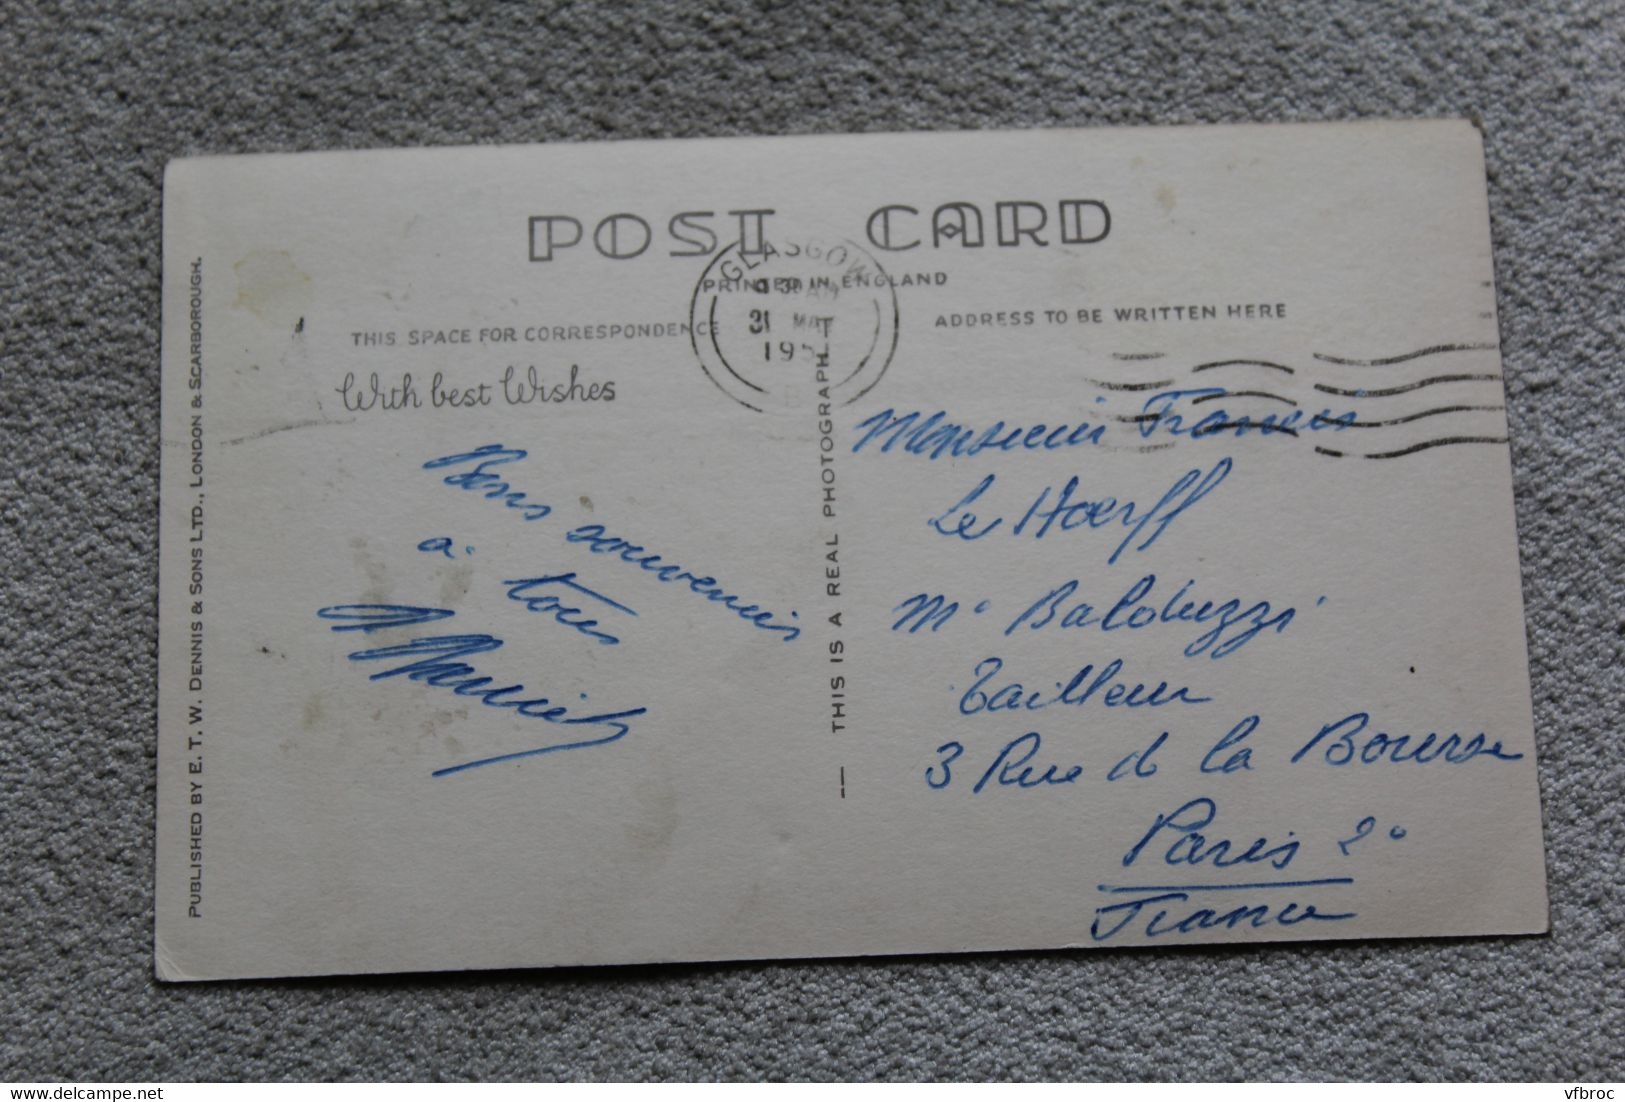 POST CARD
PRINTED IN ENGLAND
THIS SPACE FOR CORRESPONDENCE
ADDRESS TO BE WRITTEN HERE
With best Wishes
GLASGOW
31 MA
195
Bons souvenirs
à tous
Monsieur Francis
Le Hoerff
Mr Balduzzi
Tailleur
3 Rue de la Bourse
Paris 2e
France
THIS IS A REAL PHOTOGRAPH
PUBLISHED BY E. T. W. DENNIS & SONS LTD., LONDON & SCARBOROUGH.
delcampe.net
vfbroc